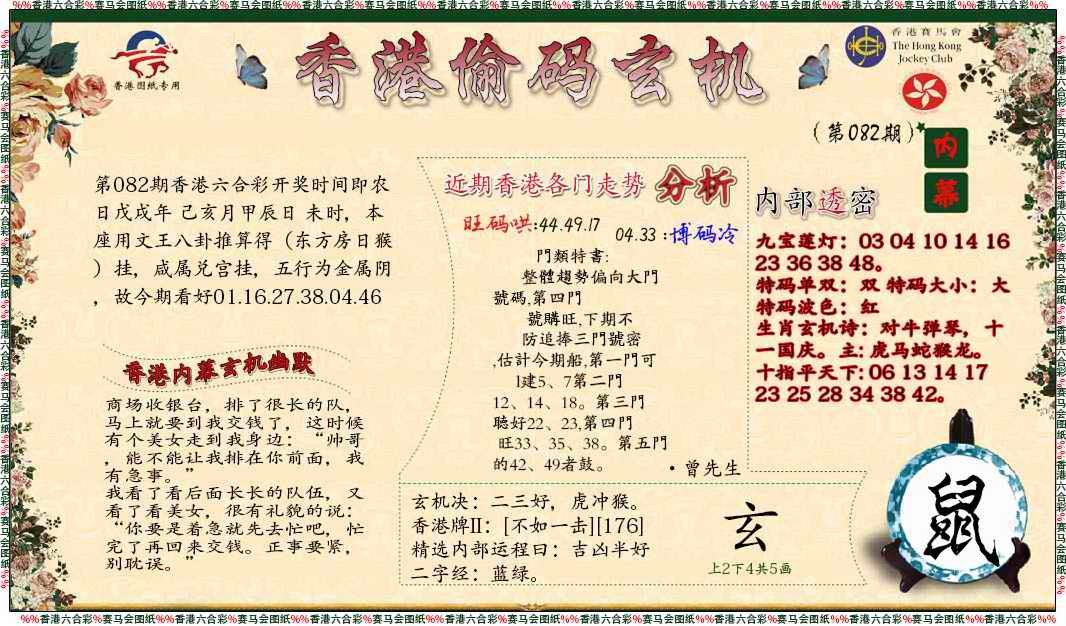 %%香港六合彩%赛马会图纸%%香港六合彩%赛马会图纸%%香港六合彩%赛马会图纸%%香港六合彩%赛马会图纸%%香港六合彩%赛马会图纸%%香港六合彩%赛马会图纸%%香港六合彩%%
香港图纸专用
香港偷码玄机
香港賽馬會
The Hong Kong
Jockey Club
(第082期)
内幕
第082期香港六合彩开奖时间即农
日戊戌年 己亥月甲辰日 未时，本
座用文王八卦推算得（东方房日猴
）挂，咸属兑宫挂，五行为金属阴
，故今期看好01.16.27.38.04.46
香港内幕玄机幽默
商场收银台，排了很长的队，
马上就要到我交钱了，这时候
有个美女走到我身边：“帅哥
，能不能让我排在你前面，我
有急事。”
我看了看后面长长的队伍，又
看了看美女，很有礼貌的说：
“你要是着急就先去忙吧，忙
完了再回来交钱。正事要紧，
别耽误。”
近期香港各门走势 分析
旺码哄:44.49.17
04.33 :博码冷
門類特書:
整體趨勢偏向大門
號碼,第四門
號購旺,下期不
防追捧三門號密
,估計今期船,第一門可
1建5、7第二門
12、14、18。第三門
聽好22、23,第四門
旺33、35、38。第五門
的42、49者鼓。
·曾先生
内部透密
九宝莲灯：03 04 10 14 16
23 36 38 48。
特码单双：双 特码大小：大
特码波色：红
生肖玄机诗：对牛弹琴，十
一国庆。主: 虎马蛇猴龙。
十指平天下: 06 13 14 17
23 25 28 34 38 42。
玄机决：二三好，虎冲猴。
香港牌II：[不如一击][176]
精选内部运程曰：吉凶半好
二字经：蓝绿。
玄
上2下4共5画
鼠
%%香港六合彩%赛马会图纸%%香港六合彩%赛马会图纸%%香港六合彩%赛马会图纸%%香港六合彩%赛马会图纸%%香港六合彩%赛马会图纸%%香港六合彩%赛马会图纸%%香港六合彩%%